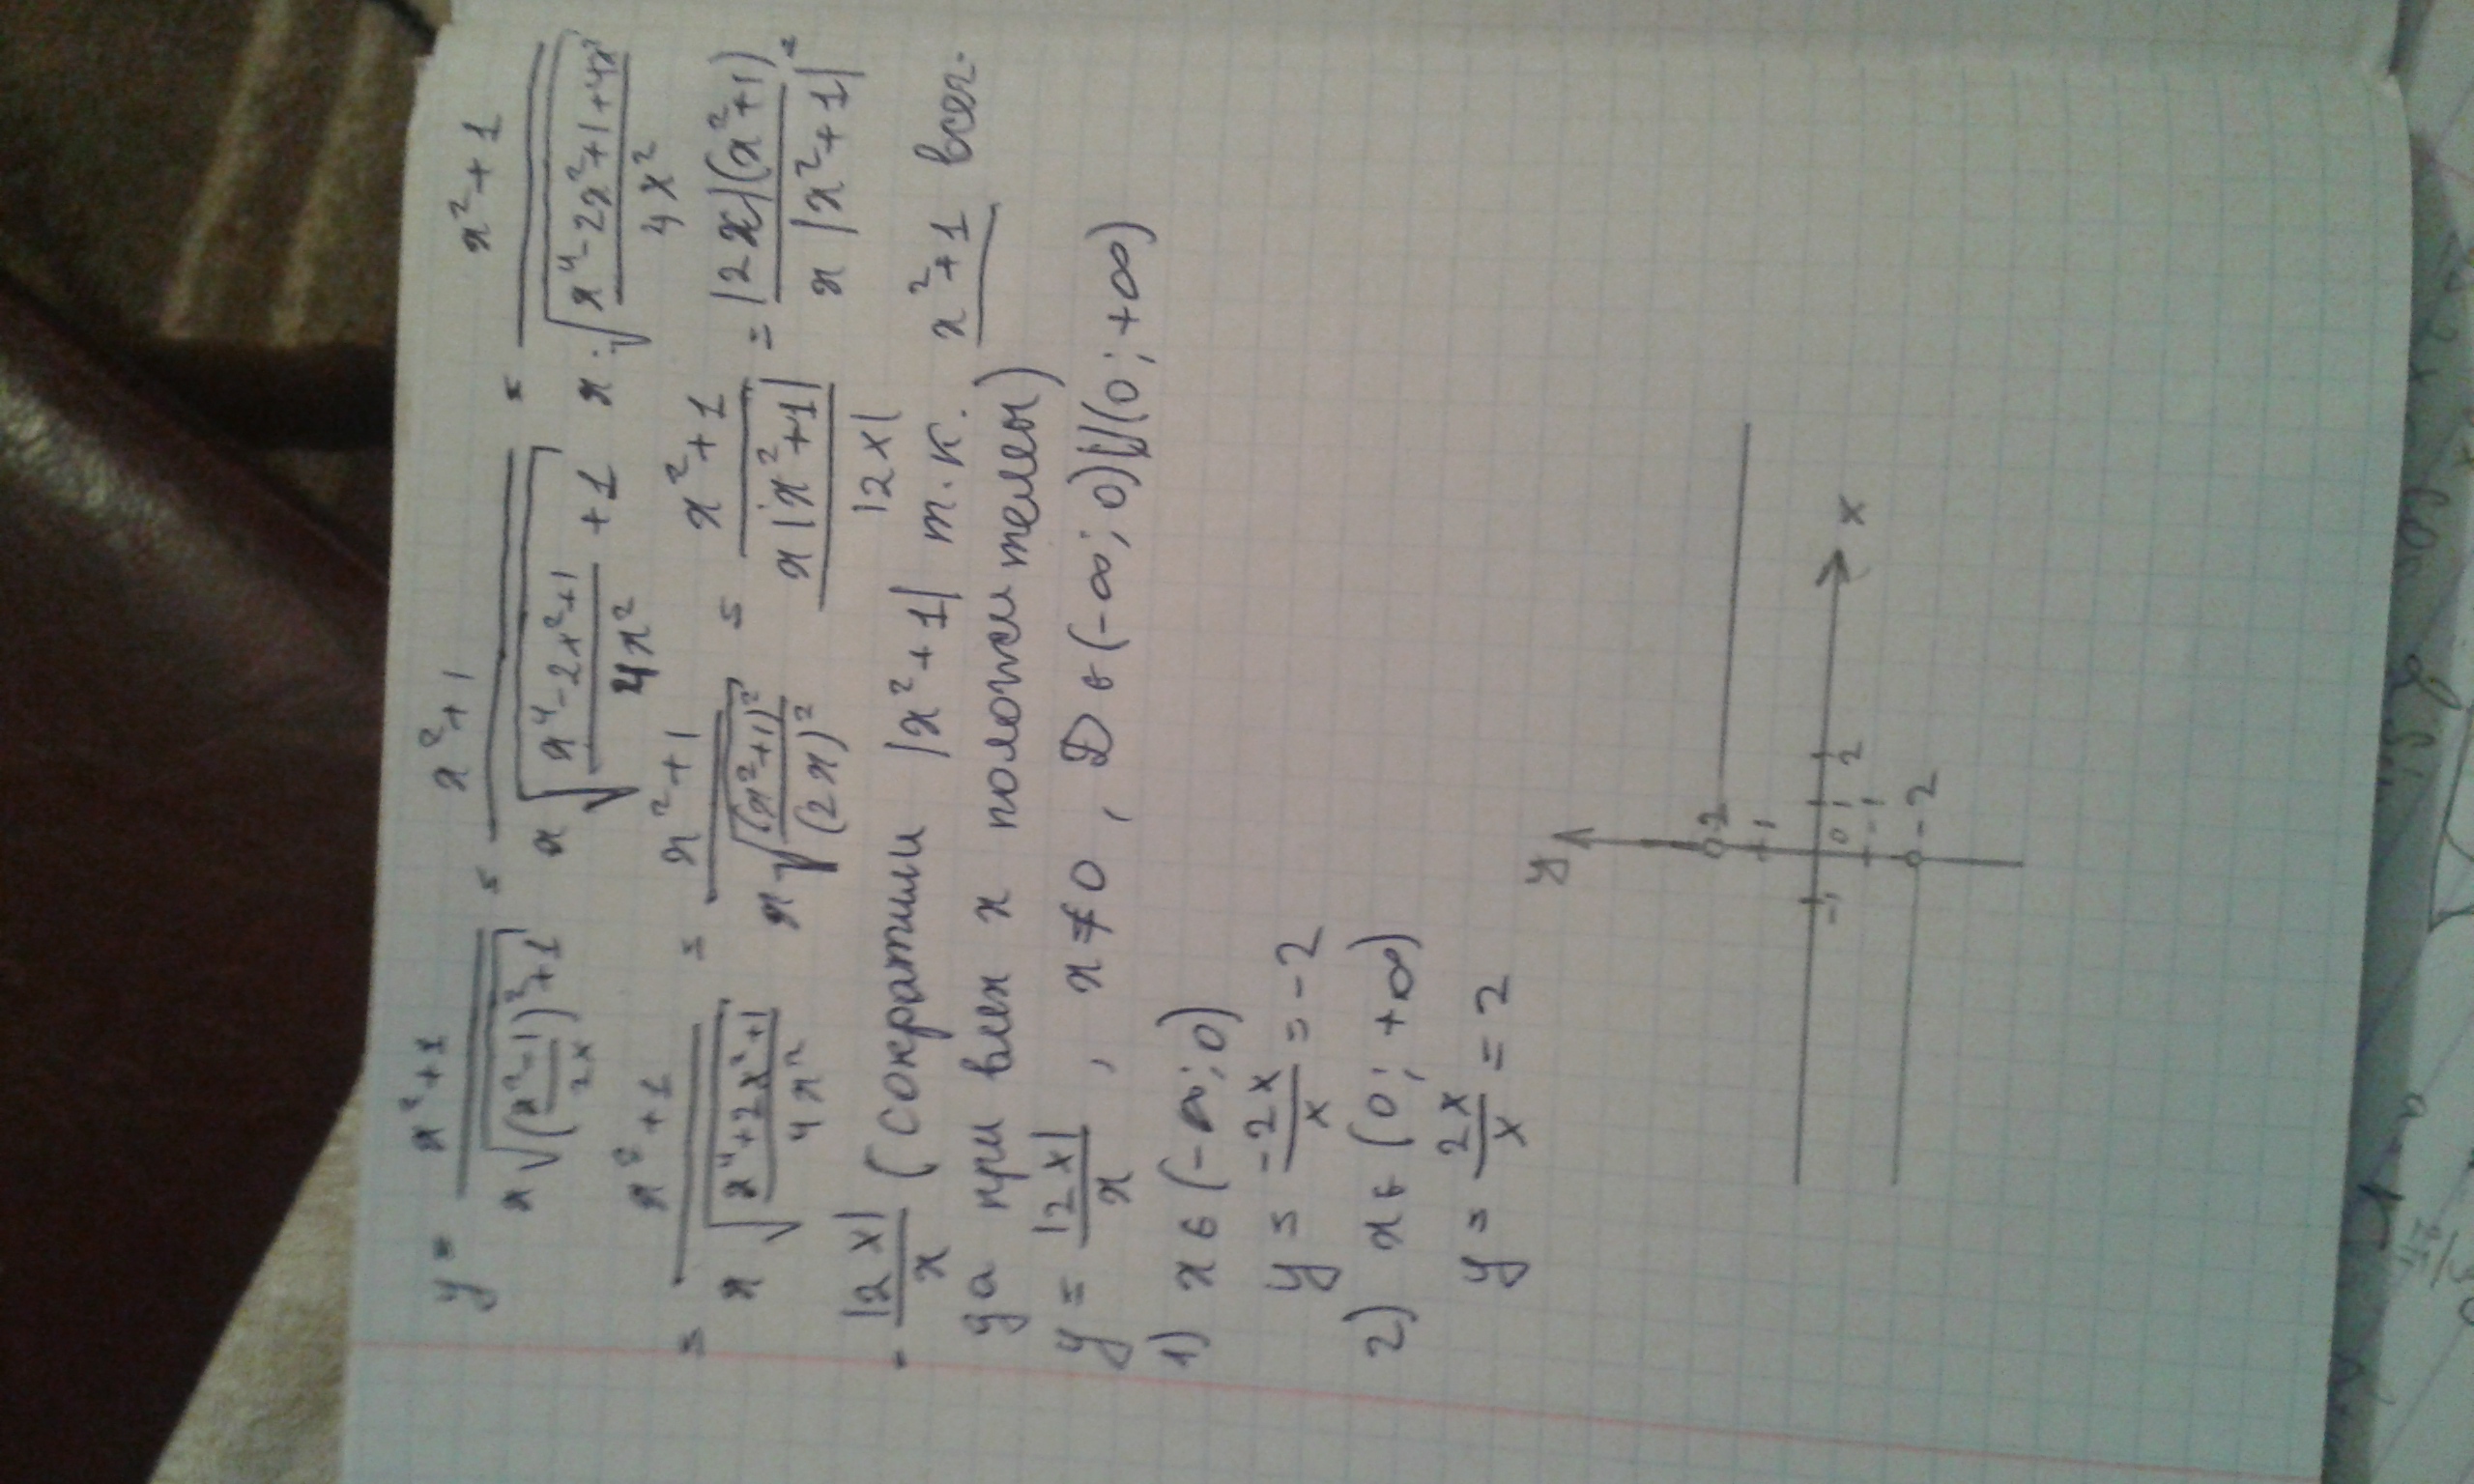 y = (x²+1)/(x√(((x²-1)/2x)²+1)) = (x²+1)/(x√((x⁴-2x²+1)/4x² + 1)) = (x²+1)/(x·√((x⁴-2x²+1+4x²)/4x²))
= (x²+1)/(x√((x⁴+2x²+1)/4x²)) = (x²+1)/(x√((x²+1)²/(2x)²)) = (x²+1)/(x|x²+1|/|2x|) = |2x|(x²+1)/(x|x²+1|) =
= |2x|/x (сократили |x²+1| т.к. x²+1 всег-
да при всех x положителен)
y = |2x|/x , x≠0, D ∈ (-∞; 0)∪(0; +∞)
1) x ∈ (-∞; 0)
y = -2x/x = -2
2) x ∈ (0; +∞)
y = 2x/x = 2
y
2
1
-1 0 1 2 x
-1
-2